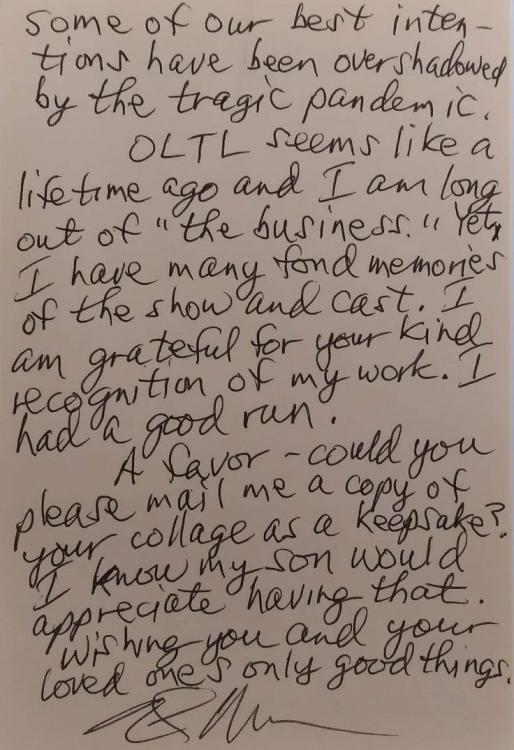 some of our best inten-
tions have been overshadowed
by the tragic pandemic.
OLTL seems like a
lifetime ago and I am long
out of "the business." Yet,
I have many fond memories
of the show and cast. I
am grateful for your kind
recognition of my work. I
had a good run.
A favor - could you
please mail me a copy of
your collage as a keepsake?
I know my son would
appreciate having that.
Wishing you and your
loved ones only good things.